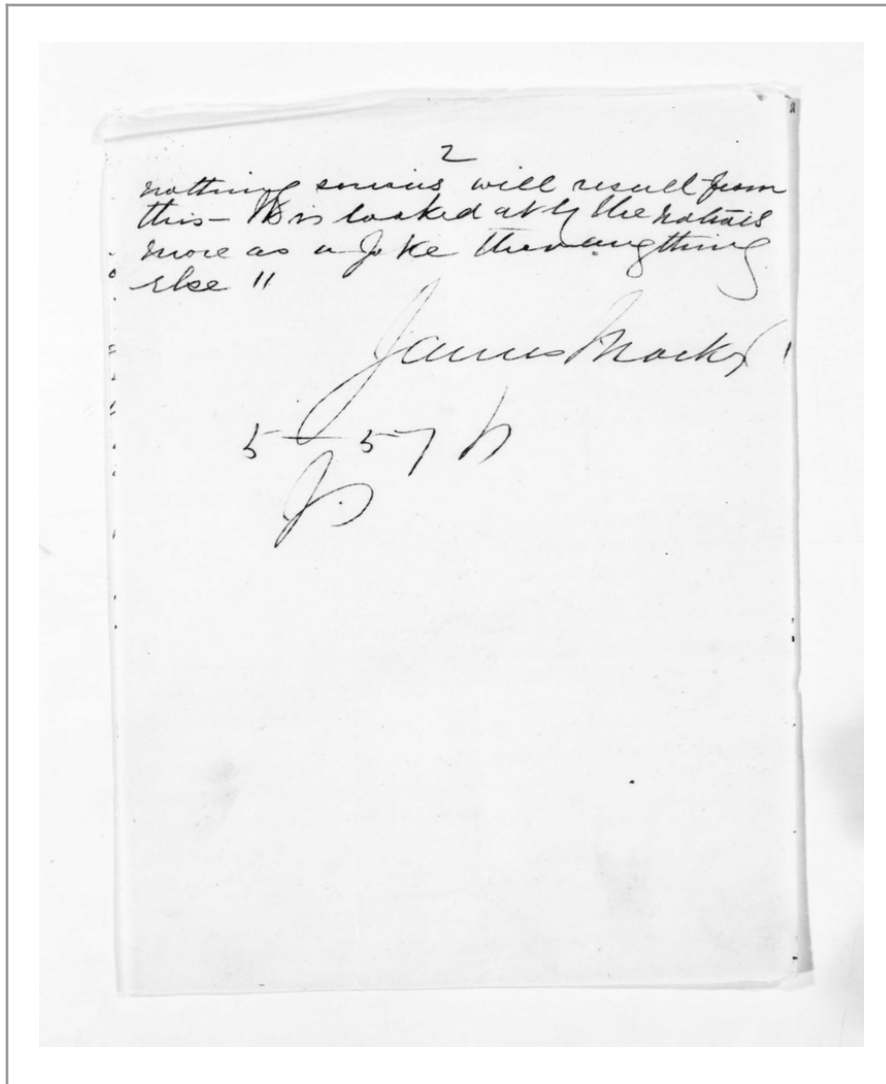 2
nothing serious will result from
this - It is looked at by the natives
more as a Joke than anything
else "
James
5-57 h